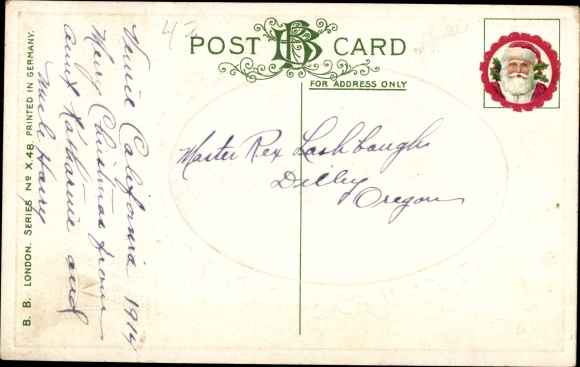 POST BB CARD
FOR ADDRESS ONLY
Master Rex Lashbaugh
Dilley
Oregon
Venice California 1914
Mery Christmas from
aunt Katharine and
uncle Harry
B. B. LONDON. SERIES Nº X.48. PRINTED IN GERMANY.